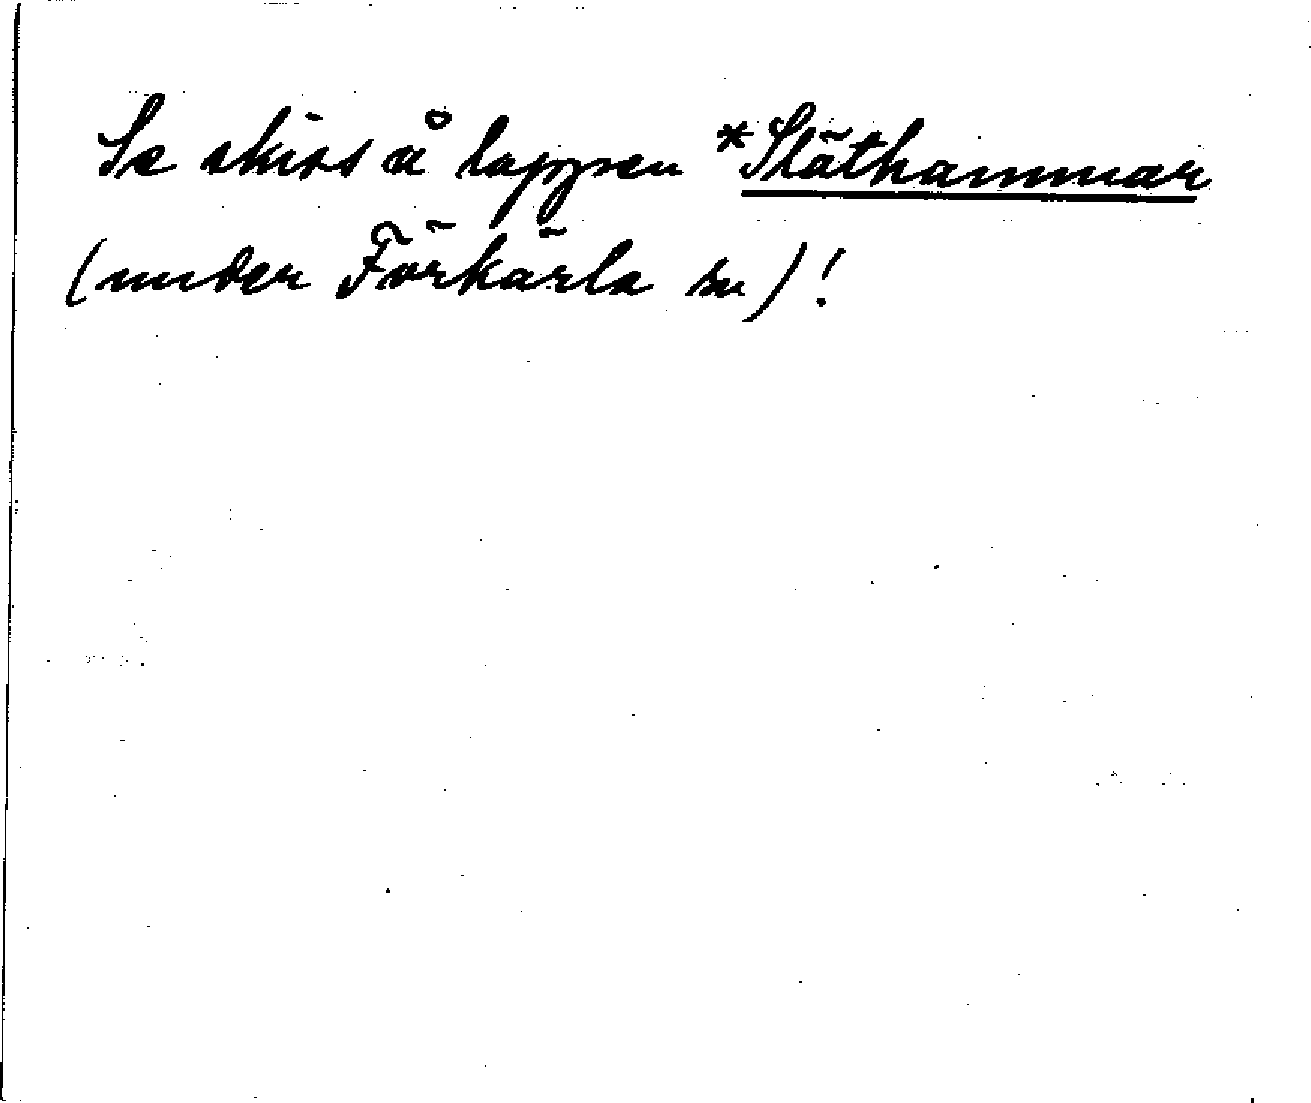 Se skiss å lappen *Släthammar
(under Förkärla sn)!